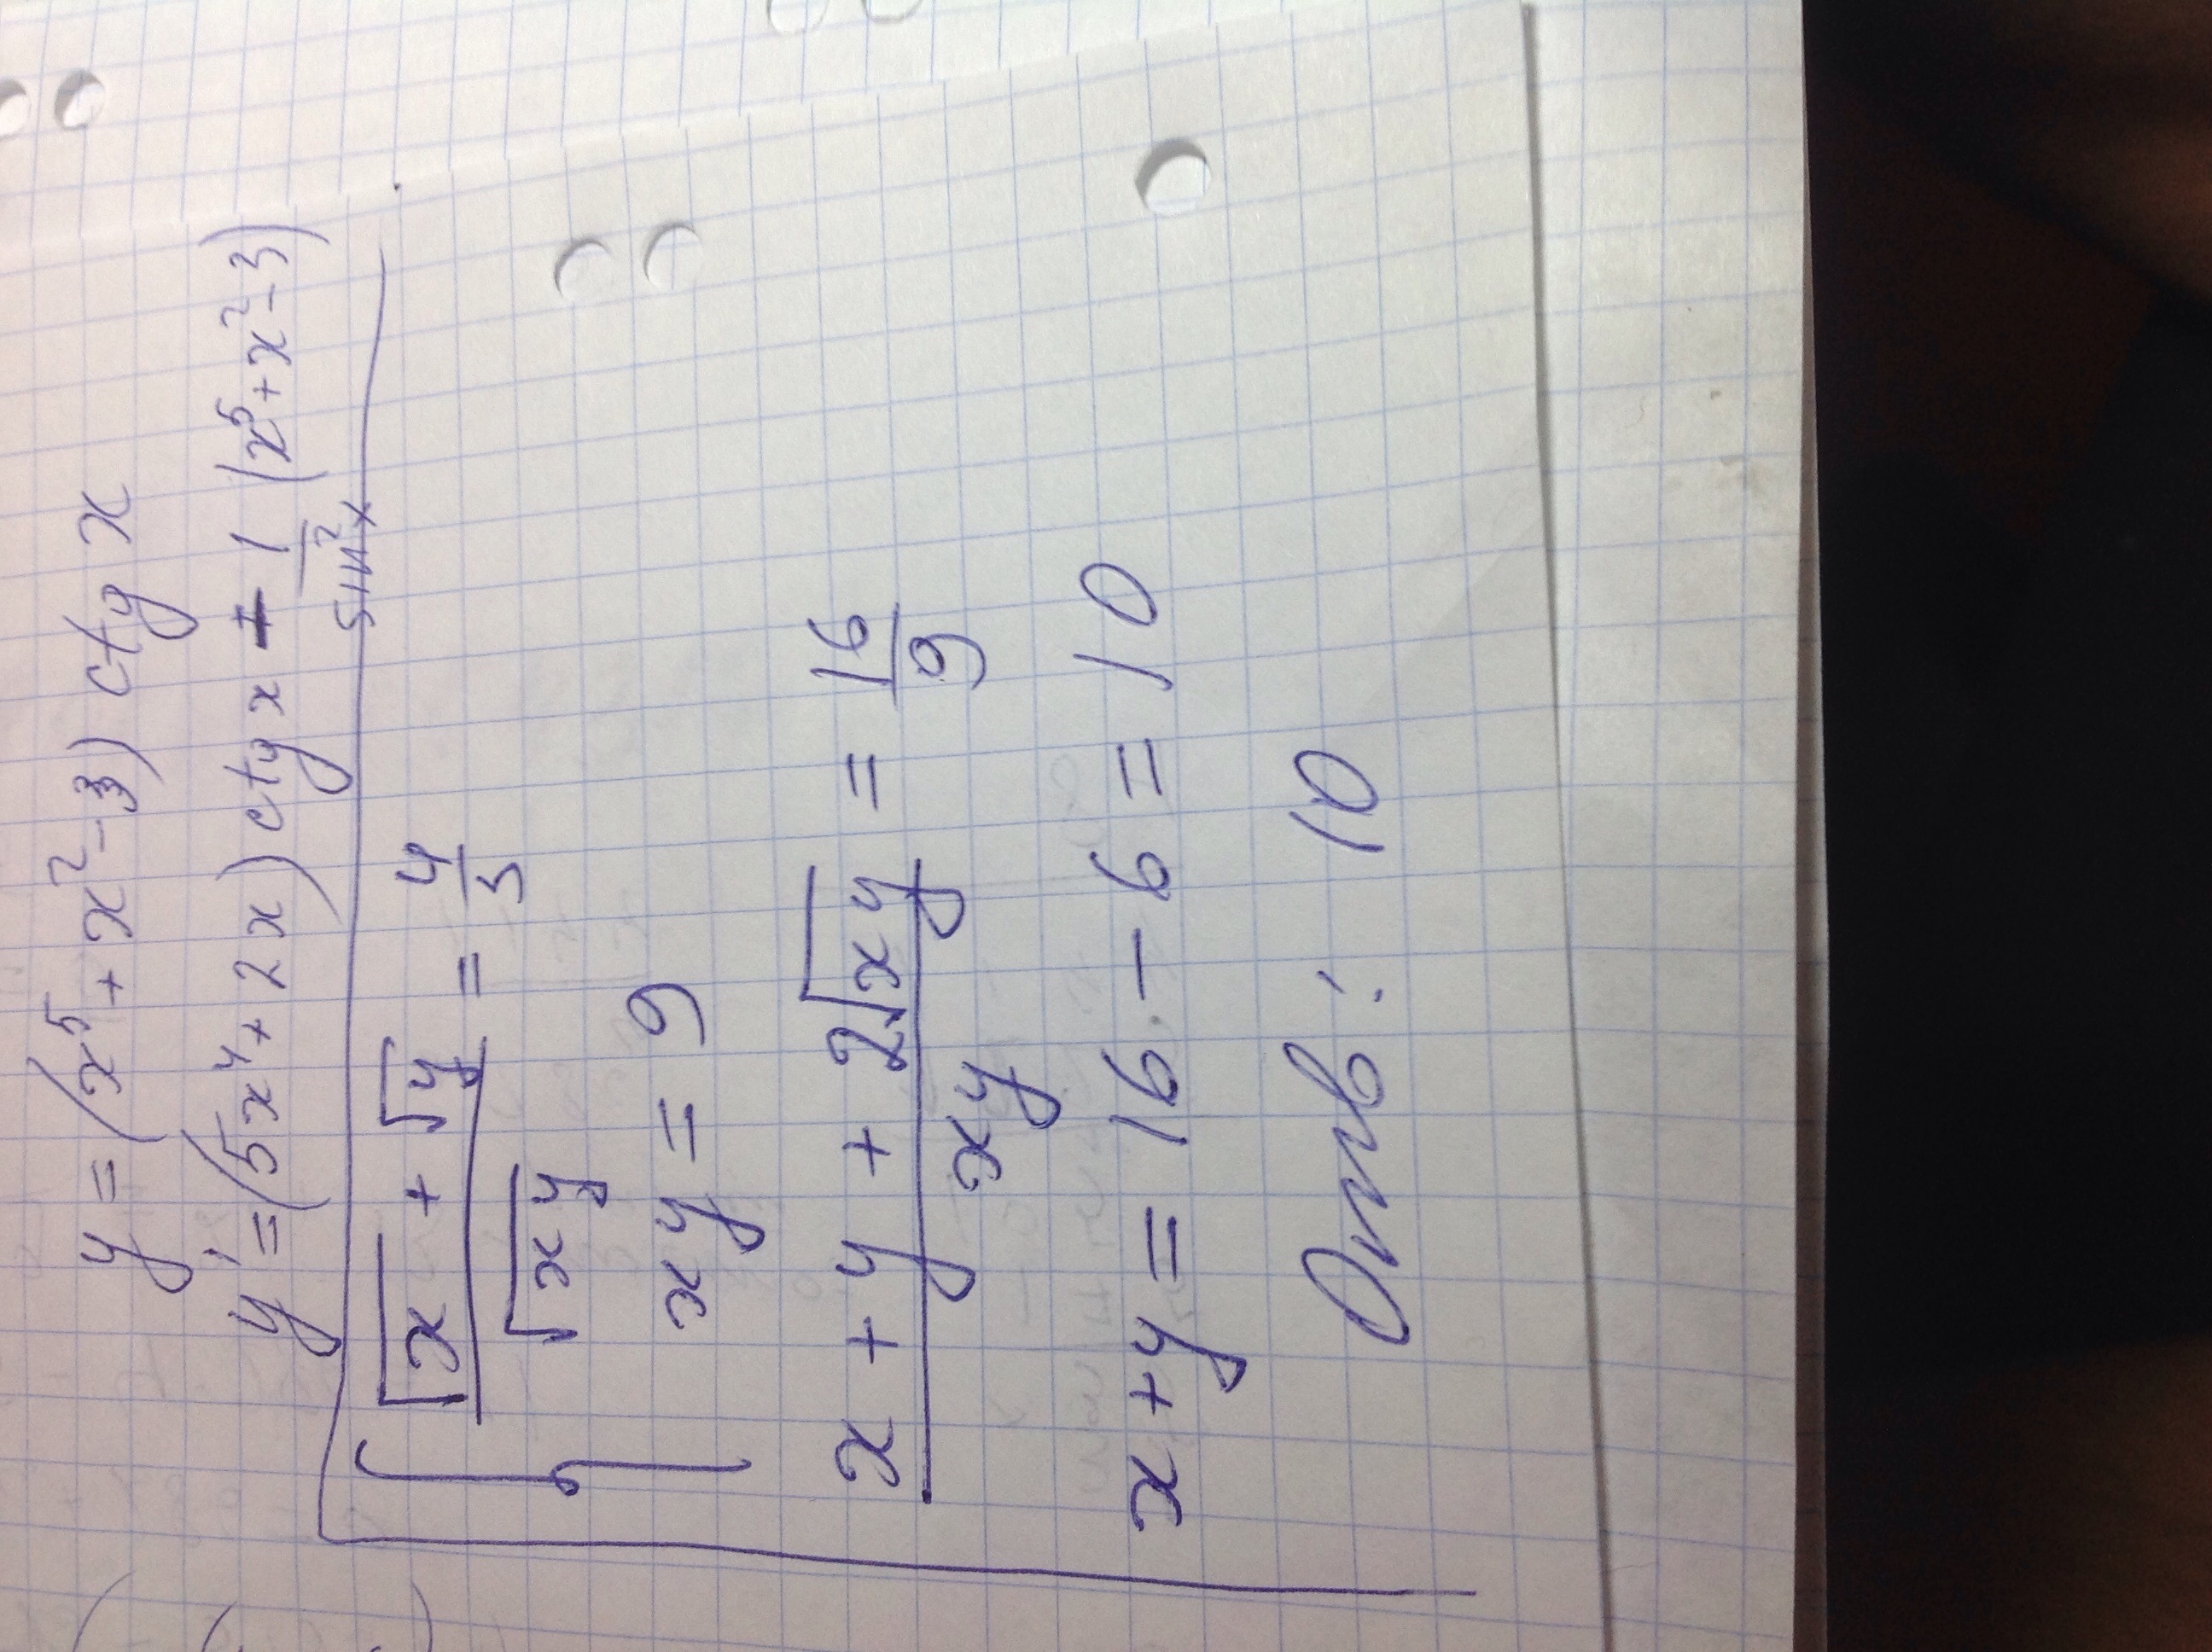 y = (x⁵ + x² - 3) ctg x
y' = (5x⁴ + 2x) ctg x - 1/sin²x (x⁵ + x² - 3)
{ (√x + √y)/√xy = 4/3
xy = 9
(x + y + 2√xy)/xy = 16/9
x + y = 16 - 6 = 10
Отв: 10